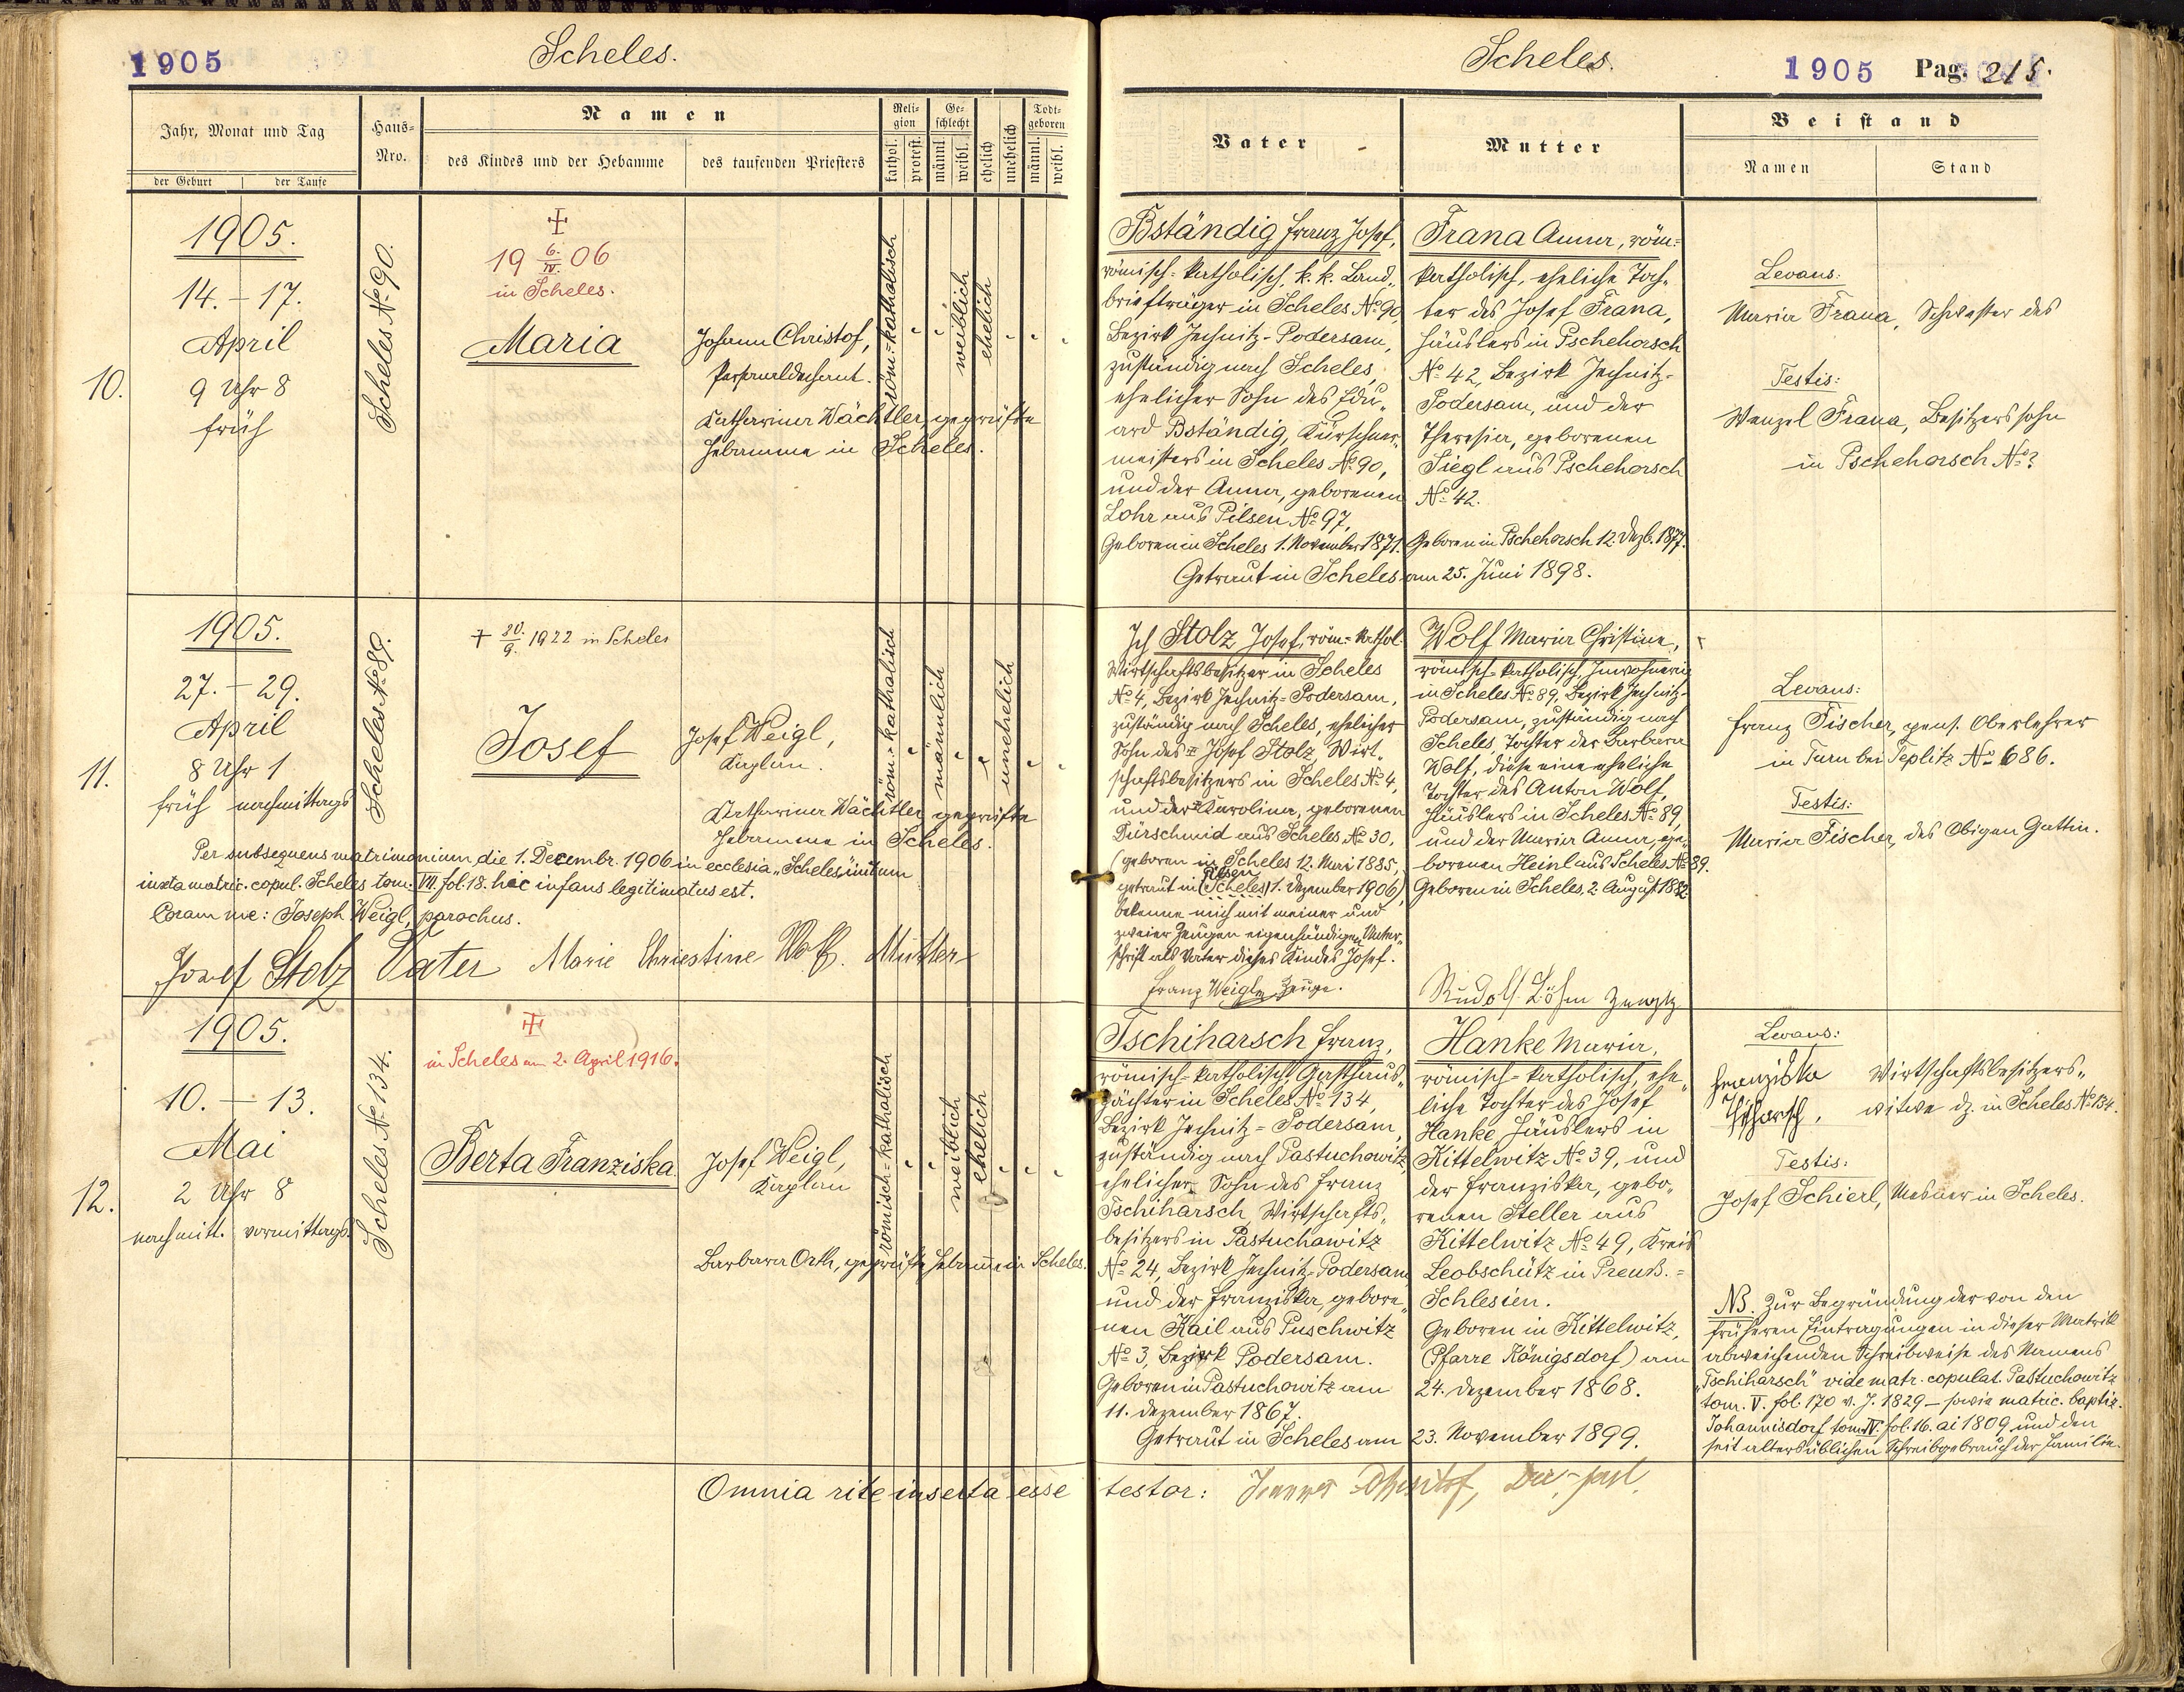 1905
Scheles.
Jahr, Monat und Tag
der Geburt
der Taufe
Haus-
Nro.
Namen
des Kindes und der Hebamme
des taufenden Priesters
Reli-
gion
kathol.
protest.
Ge-
schlecht
männl.
weibl.
ehelich
unehelich
Todt-
geboren
männl.
weibl.
10.
1905.
14. - 17.
April
9 Uhr 8
früh
Scheles No 90.
19 6/IV. 06
in Scheles.
Maria
Johann Christof,
Personaldechant.
Katharina Wächtler, geprüfte
Hebamme in Scheles.
röm=katholisch
weiblich
ehelich
11.
1905.
27. - 29.
April
8 Uhr 1
früh nachmittags
Scheles No 89.
† 20./9. 1922 in Scheles
Josef
Josef Weigl,
Kaplan.
Katharina Wächtler geprüfte
Hebamme in Scheles.
röm.=katholisch
männlich
unehelich
Per subsequens matrimonium, die 1. Decembr. 1906 in ecclesia „Scheles" initum
iuxta matric. copul. Scheles tom. VII. fol. 18. hic infans legitimatus est.
Coram me: Joseph Weigl, parochus.
Josef Stolz Vater Marie Christine Wolf. Mutter
12.
1905.
10. - 13.
Mai
2 Uhr 8
nachmitt. vormittags.
Scheles No 134.
in Scheles am 2. April 1916.
Berta Franziska
Josef Weigl,
Kaplan
Barbara Orth, geprüfte Hebamme in Scheles.
römisch=katholisch
weiblich
ehelich
Omnia rite inserta esse
Scheles.
1905 Pag. 215.
Vater
Mutter
Beistand
Namen
Stand
Bständig Franz Josef,
römisch=katholisch, k. k. Land„
briefträger in Scheles No 90,
Bezirk Jechnitz-Podersam,
zuständig nach Scheles,
ehelicher Sohn des Edu„
ard Bständig, Kürschner„
meisters in Scheles No 90,
und der Anna, geborenen
Lohr aus Pilsen No 97.
Geboren in Scheles 1. November 1871.
Frana Anna, röm=
katholisch, eheliche Toch„
ter des Josef Frana,
Häuslers in Pschehorsch
No 42, Bezirk Jechnitz-
Podersam, und der
Theresia, geborenen
Siegl aus Pschehorsch
No 42.
Geboren in Pschehorsch 12. Dezb. 1877.
Getraut in Scheles am 25. Juni 1898.
Levans:
Maria Frana, Schwester des
Testis:
Wenzel Frana, Besitzerssohn
in Pschehorsch No ?
Ich Stolz Josef, röm=kathol.
Wirtschaftsbesitzer in Scheles
No 4, Bezirk Jechnitz-Podersam,
zuständig nach Scheles, ehelicher
Sohn des Josef Stolz, Wirt„
schaftsbesitzers in Scheles No 4,
und der Karolina, geborenen
Dürschmid aus Scheles No 30.
(geboren in Scheles 12. Mai 1885,
Pilsen
getraut in (Scheles) 1. Dezember 1906),
bekenne mich mit meiner und
zweier Zeugen eigenhändigen Unter„
schrift als Vater dieses Kindes Josef.
Franz Weigl Zeuge.
Wolf Maria Christine,
römisch-katholisch, Inwohnerin
in Scheles No 89, Bezirk Jechnitz-
Podersam, zuständig nach
Scheles, Tochter der Barbara
Wolf, diese eine eheliche
Tochter des Anton Wolf,
Häuslers in Scheles No 89,
und der Maria Anna, ge„
borenen Heinl aus Scheles No 89.
Geboren in Scheles, 2. August 1882
Rudolf Löhn Zeuge
Levans:
Franz Fischer, pens. Oberlehrer
in Turn bei Teplitz No 686.
Testis:
Maria Fischer, des Obigen Gattin.
Tschiharsch Franz,
römisch-katholisch, Gasthaus„
pächter in Scheles No 134,
Bezirk Jechnitz=Podersam,
zuständig nach Pastuchowitz,
ehelicher Sohn des Franz
Tschiharsch, Wirtschafts„
besitzers in Pastuchowitz
No 24, Bezirk Jechnitz-Podersam
und der Franziska, gebore„
nen Kail aus Puschwitz
No 3, Bezirk Podersam.
Geboren in Pastuchowitz am
11. Dezember 1867.
Hanke Maria,
römisch=katholisch, ehe„
liche Tochter des Josef
Hanke, Häuslers in
Kittelwitz No 39, und
der Franziska, gebo„
renen Steller aus
Kittelwitz No 49, Kreis
Leobschütz in Preuß.=
Schlesien.
Geboren in Kittelwitz,
(Pfarre Königsdorf) am
24. Dezember 1868.
Getraut in Scheles am 23. November 1899.
Levans:
Franziska Wirtschaftsbesitzers„
Tschiharsch, witwe dz. in Scheles No 134.
Testis:
Josef Schierl, Mesner in Scheles.
NB. Zur Begründung der von den
früheren Eintragungen in dieser Matrik
abweichenden Schreibweise des Namens
„Tschiharsch" vide matr. copulat. Pastuchowitz
tom. V. fol. 170 v. J. 1829 - sowie matric. baptiz.
Johannisdorf tom. IV. fol. 16. ai 1809 und den
seit altersüblichen Schreibgebrauch der Familie.
testor: